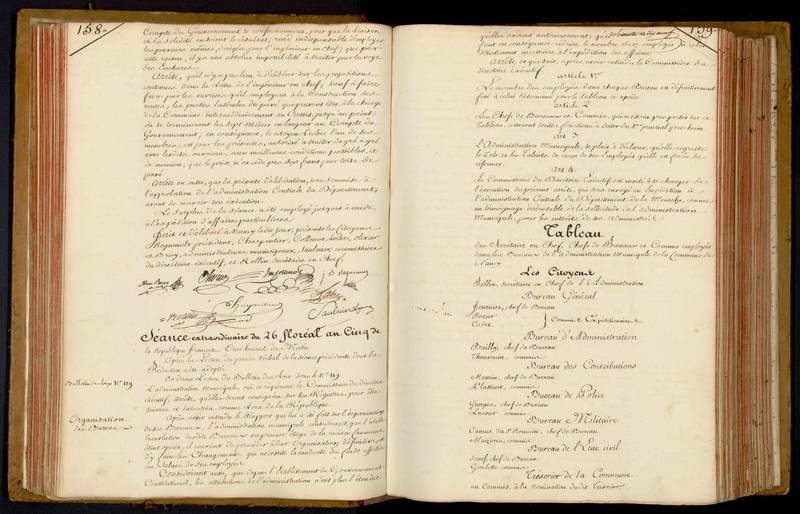 158-
Compte du Gouvernement se confectionnera, pour que la liaison
et la solidité en soient le résultat, rend indispensable d'employer
les paveurs mêmes, dirigés par l'ingénieur en chef; que par
cette raison, il y a une absolue impossibilité à traiter par la voye
des Enchères.
Arrête, qu'il n'y a pas lieu à délibérer sur les propositions
contenues dans la lettre de l'ingénieur en chef, sauf à faire
faire par les ouvriers qu'il employera à la Construction des
routes, les parties latérales du pavé qui peuvent être à la charge
de la Commune
où se termineront les sept mètres en largeur au Compte du
Gouvernement; en conséquence, le citoyen Leclerc l'un de ses
membres, est par les présentes, autorisé à traiter de gré à gré
avec lesdits ouvriers, aux meilleures conditions possibles, et
de manière, que le prix n'excède pas six francs, pour toise de
pavé.
Arrête en outre, que la présente délibération, sera soumise à
l'approbation de l'administration Centrale du Département,
avant de recevoir son exécution.
Le surplus de la séance a été employé jusques à midi
à l'expédition d'affaires particulières.
Fait et délibéré à Nancy les dits jour, présents les Citoyens
Regnault président; Charpentier, Collenot, Leclerc, Olivier
et Briey, administrateurs municipaux, Saulnier, commissaire
du directoire exécutif, et Rollin secrétaire en Chef.
Saulnier
Séance extraordinaire du 26 floréal an Cinq de
la République française. Onze heures du Matin
Après la Lecture du procès verbal de la séance précédente dont la
Rédaction a été adoptée.
On donne lecture du Bulletin des Loix sous le N.° 119.
Bulletin des loix N.° 119
L'administration Municipale, ouï ce requérant le Commissaire du directoire
exécutif, arrête, qu'elles seront consignées sur ses Registres, pour être
suivies et exécutées comme Loix de la République.
Organisation
des Bureaux
Après avoir entendu le Rapport qui lui a été fait sur l'organisation
de ses Bureaux, l'administration municipale considérant que l'utile
translation desdits Bureaux au premier étage de la maison Commune
étant opérée, il convient de procéder à leur Organisation définitive, et
d'y faire les Changements que nécessite la modicité des fonds affectés
au Salaire de ses employés.
Considérant aussi, que depuis l'établissement du Gouvernement
Constitutionnel, les attributions de l'administration n'ont plus l'étendue
159-
qu'elles avaient antérieurement; qu'il
faut en conséquence réduire le nombre des employés à celui
strictement nécessaire à l'expédition des affaires.
Arrête ce qui suit, après avoir entendu le Commissaire du
directoire exécutif.
article 1.er
Le nombre des employés dans chaque Bureau est définitivement
fixé à celui déterminé par le tableau ci après.
article 2
Les Chefs de Bureaux et Commis, qui ne seront pas portés sur ce
Tableau, cesseront toutes fonctions à dater du 1.er prairial prochain
Art. 3.
L'Administration Municipale, se plaît à déclarer, qu'elle regrette
le Zèle et les Talents de ceux de ses Employés qu'elle est forcée de
réformer.
Art. 4.
Le Commissaire du Directoire Exécutif est invité à se charger de
l'exécution du présent arrêté, qui sera envoyé en Expédition à
l'administration Centrale du Département de la Meurthe, comme
un témoignage irréfutable de la sollicitude de l'administration
Municipale, pour les intérêts de ses Administrés.
Tableau
des Secrétaire en Chef, Chefs de Bureaux et Commis employés
dans les Bureaux de l'administration Municipale de la Commune de
Nancy
Les Citoyens
Rollin, Secrétaire en Chef de l'Administration
Bureau Général
Fournier, chef de Bureau
Rozier
Cadet
} Commis Expéditionnaires
Bureau d'Administration
Bailly, chef de Bureau
Thouvenin, commis
Bureau des Contributions
Messin, chef de Bureau
Plassiart, commis
Bureau de Police
Georges, chef de Bureau
Lacour commis
Bureau Militaire
chef de Bureau
commis
Bureau de l'Etat civil
chef de Bureau
Goulette commis
Trésorier de la Commune
un Commis, à la nomination dudit Trésorier